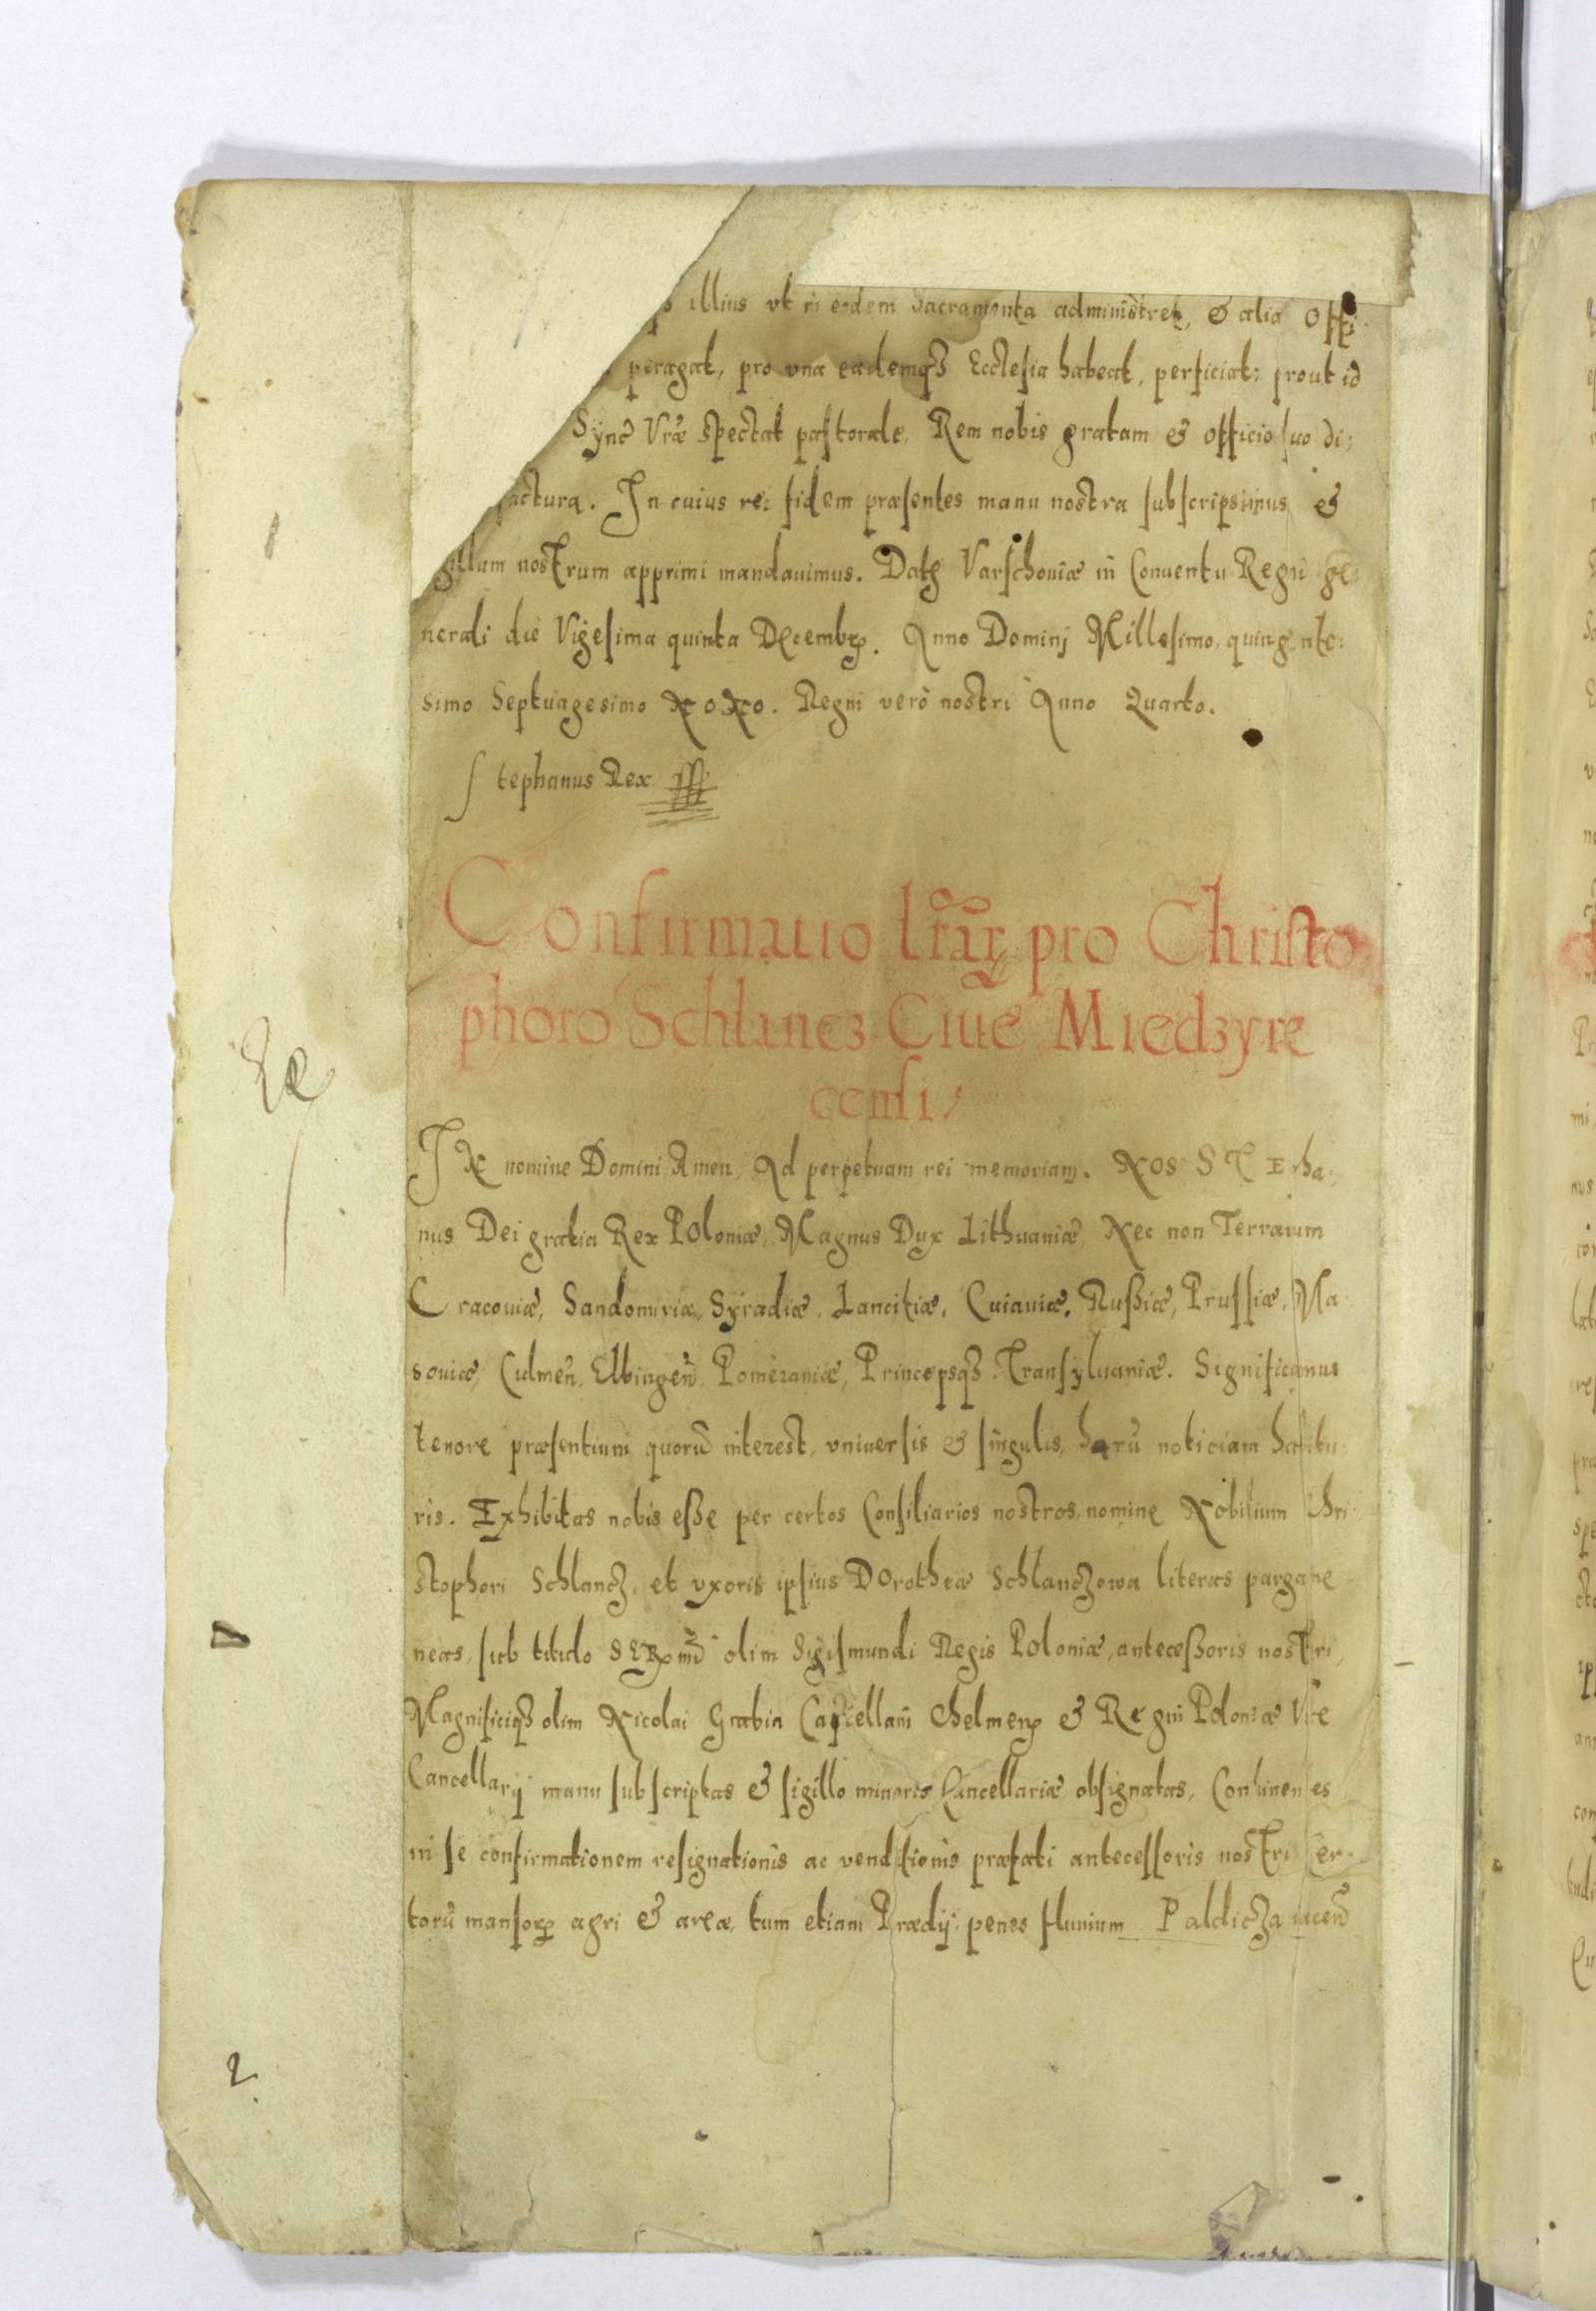 illius vt in eodem Sacramenta administret, & alia Offi
peragat, pro vna eademqȝ Ecclesia habeat, perficiat: prout id
Sync̃ Vr̃æ spectat pastorale. Rem nobis gratam & officio suo di:
factura. In cuius rei fidem præsentes manu nostra subscripsimus &
gillum nostrum apprimi mandauimus. Datȩ Varschouiæ in Conuentu Regni ge
nerali die Vigesima quinta Decembꝝ. Anno Domini Millesimo, quingente:
simo Septuagesimo Nono. Regni verò nostri Anno Quarto.
Stephanus Rex
Confirmatio lr̃aꝝ pro Christo
phoro Schlancz Ciue Miedzyre
censi
IN nomine Domini Amen, Ad perpetuam rei memoriam. NOS STEpha
nus Dei gratia Rex Poloniæ, Magnus Dux Lithuaniæ, Nec non Terrarum
Cracouiæ, Sandomiriæ, Syradiæ, Lancitiæ, Cuiauiæ, Rußiæ, Prussiæ, Ma
souiæ, Culmeñ, Elbingeñ, Pomeraniæ, Princepsqȝ Transyluaniæ. Significamus
tenore præsentium quorũ interest, vniuersis & singulis, harũ noticiam habitu
ris. Exhibitas nobis eße per certos Consiliarios nostros, nomine Nobilium Chri
stophori Schlancz, et vxoris ipsius Dorotheæ Schlanczowa literas pargame
neas, sub titulo olim Sigismundi Regis Poloniæ, anteceßoris nostri,
Magnificiqȝ olim Nicolai Grabia Castellani Chelmenꝭ & Regni Poloniæ Vice
Cancellarij manu subscriptas & sigillo minoris Cancellariæ obsignatas, Continentes
in se confirmationem resignationis ac venditionis præfati antecessoris nostri Cer
torũ mansoꝝ agri & areæ, tum etiam Prædij penes fluuium Paldicza iaceñ
2